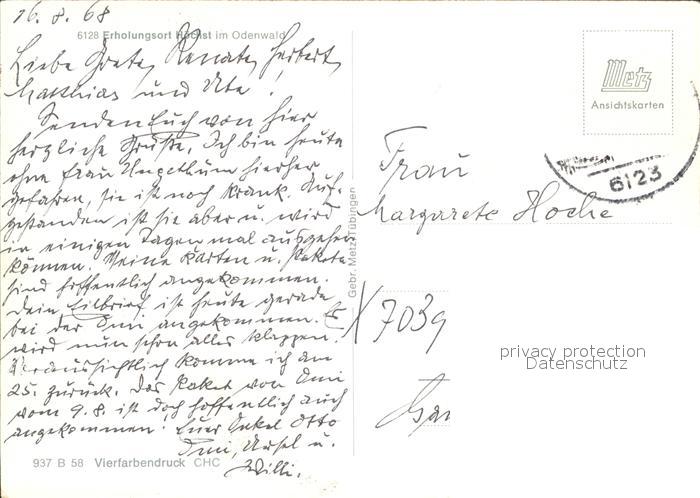 16.8.68
6128 Erholungsort Höchst im Odenwald
Liebe Grete, Renate, Herbert,
Matthias und Ute!
Senden Euch von hier
herzliche Grüße. Ich bin heute
ohne Frau Ungethüm hierher
gefahren, sie ist noch krank. Auf-
gestanden ist sie aber u. wird
in einigen Tagen mal ausgehen
können. Meine Karten u. Pakete
sind hoffentlich angekommen.
Dein Eilbrief ist heute gerade
bei der Omi angekommen. Es
wird nun schon alles klappen.
Voraussichtlich komme ich am
25. zurück. Das Paket von Omi
vom 9.8. ist doch hoffentlich auch
angekommen! Euer Onkel Otto
Omi, Ursel u.
Willi.
937 B 58 Vierfarbendruck CHC
Gebr. Metz, Tübingen
Metz
Ansichtskarten
6123
Frau
Margarete Hoche
X 7039
privacy protection
Datenschutz